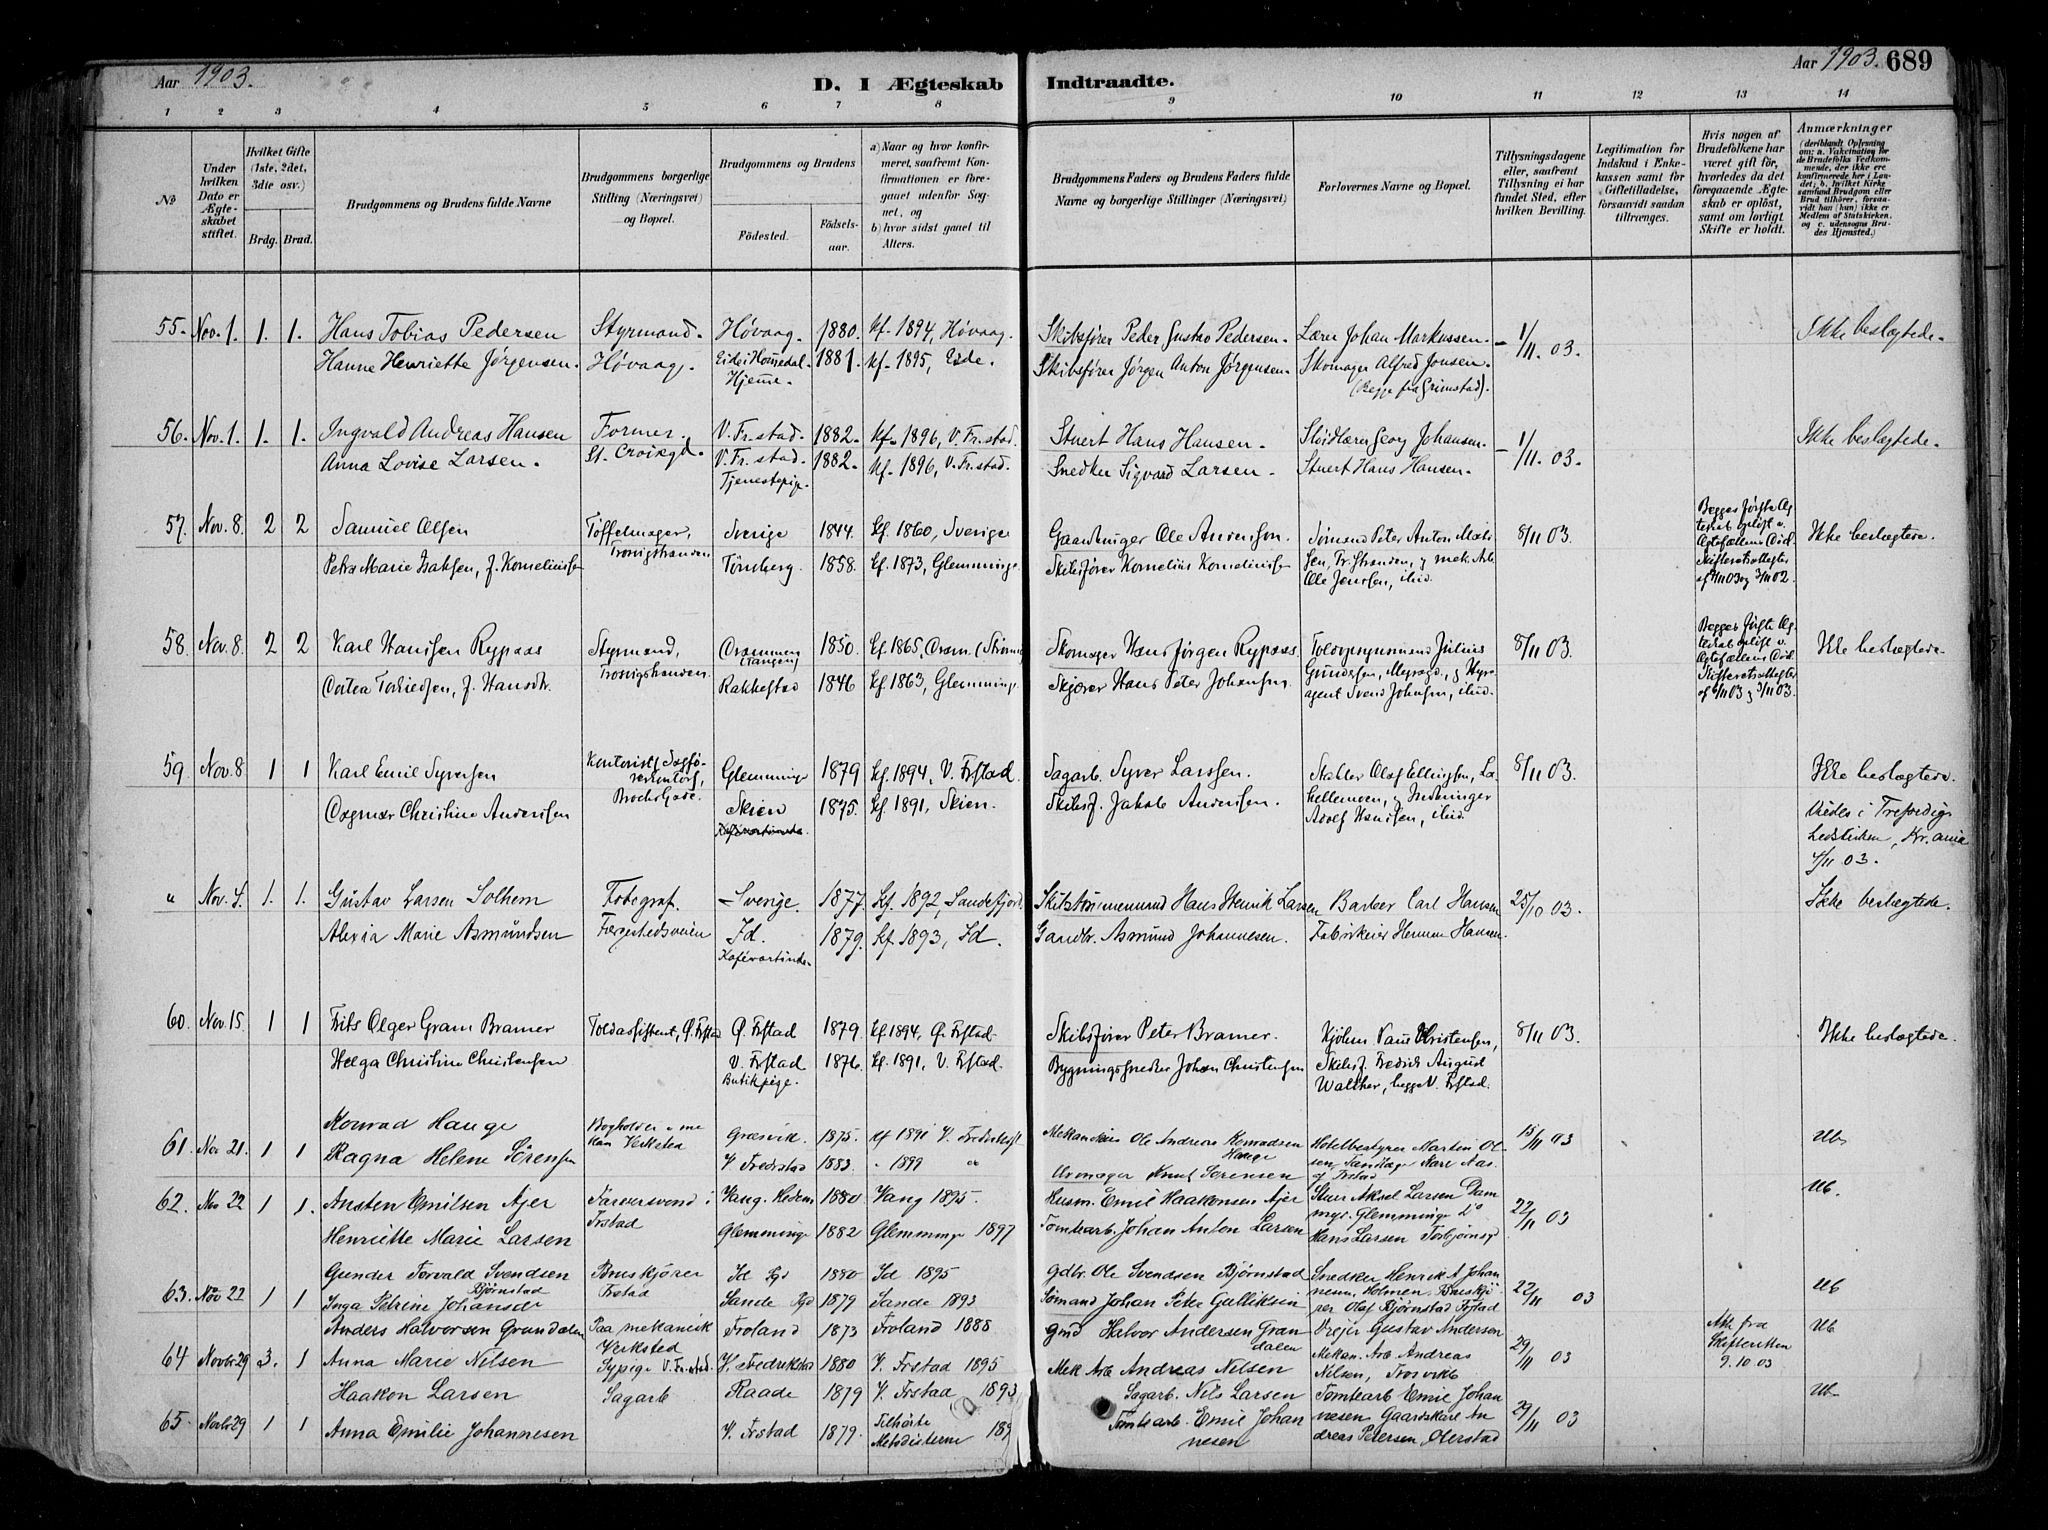 Aar 1903.
D. I Ægteskab Indtraadte.
Aar 1903. 689
1 2 3 4 5 6 7 8 9 10 11 12 13 14
No
Under hvilken Dato er Ægteskabet stiftet.
Hvilket Gifte (1ste, 2det, 3die osv.)
Brdg. Brud.
Brudgommens og Brudens fulde Navne
Brudgommens borgerlige Stilling (Næringsvei) og Bopæl.
Brudgommens og Brudens
Födested. Födselsaar.
a) Naar og hvor konfirmeret, saafremt Konfirmationen er foregaaet udenfor Sognet, og
b) hvor sidst gaaet til Alters.
Brudgommens Faders og Brudens Faders fulde Navne og borgerlige Stillinger (Næringsvei)
Forlovernes Navne og Bopæl.
Tillysningsdagene eller, saafremt Tillysning ei har fundet Sted, efter hvilken Bevilling.
Legitimation for Indskud i Enkekassen samt for Giftetilladelse, forsaavidt saadan tiltrænges.
Hvis nogen af Brudefolkene har været gift før, hvorledes da det foregaaende Ægteskab er opløst, samt om lovligt Skifte er holdt.
Anmærkninger (deriblandt Oplysning om: a. Vakcination for de Brudefolks Vedkommende, der ikke ere konfirmerede her i Landet; b. hvilket Kirkesamfund Brudgom eller Brud tilhører, forsaavidt han (hun) ikke er Medlem af Statskirken, og c. udensogns Brudes Hjemsted.)
55. Nov. 1. 1. 1. Hans Tobias Pedersen Styrmand. Høvaag. 1880. kf. 1894, Høvaag. Skibsfører Peder Gustav Pedersen. Lærer Johan Markussen. 1/11. 03. Ikke beslægtede.
Hanne Henriette Jørgensen. Høvaag. Eide i Homedal 1881. kf. 1895, Eide. Skibsfører Jørgen Anton Jørgensen. Skomager Alfred Jonsen.
Hjemme. (Begge fra Grimstad).
56. Nov. 1. 1. 1. Ingvald Andreas Hansen Former. V. Fr.stad. 1882. kf. 1896, V. Fr.stad. Stuert Hans Hansen. Sløidlærer Georg Johansen. 1/11. 03. Ikke beslægtede.
Anna Lovise Larsen. St. Croixgd. V. Fr.stad. 1882. kf. 1896, V. Fr.stad. Snedker Sigvard Larsen. Stuert Hans Hansen.
Tjenestepige.
57. Nov. 8. 2 2 Samuel Olsen Tøffelmager, Sverige 1844. kf. 1860, Sverige Gaardbruger Ole Andersson. Sømand Peter Anton 8/11 03. Ikke beslægtede.
Petra Marie Isaksen, f. Korneliussen Trosvigstranden Tønsberg. 1858. kf. 1873, Glemminge. Skibsfører Kornelius Korneliussen Fr. Stranden, og mek. Arb. Ole Jensen, ibid.
Begges første Ægteskab opløst v. Ægtefællens Død. Skifteretsattester af 4/11 03 og 3/11 02.
58. Nov. 8. 2 2 Karl Hanssen Rypaas Styrmand, Drammen (Tangen) 1850. kf. 1865, Dram. Skomager Hans Jørgen Rypaas Toldopsynsmand Julius 8/11 03. Ikke beslægtede.
f. Hansdtr. Trosvigstranden. Rakkestad 1846 kf. 1863, Glemminge. Skjærer Hans Peter Johansen. Gundersen, og Hyreagent Svend Johnsen, ibid.
Begges første Ægteskab opløst v. Ægtefællens Død. Skifteretsattester af 4/11 03 og 3/11 03.
59. Nov. 8. 1 1 Karl Emil Syversen Kontorist Glemminge 1879 kf. 1894. V. Frstad. Sagarb. Syver Larssen. Stabler Olaf Ellingsen, 8/11 03. Ikke beslægtede.
Dagmar Christine Anderssen Skien 1875. kf. 1891, Skien. Skibsf. Jakob Anderssen. Adolf Hanssen, ibid.
Viedes i Trefoldighedskirken, Kr.ania 4/11 03.
" Nov. 4. 1. 1. Gustav Larsen Solhem Fotograf. Sverige. 1877. Kf. 1892, Sandefjord. Skibstømmermand Hans Henrik Larsen Barber Carl Hansen 25/10 03. Ikke beslægtede.
Alexia Marie Asmundsen Færgestedsveien Id. 1879. kf. 1893, Id. Gaardbr. Asmund Johannesen. Fabrikeier Herman Hansen.
Kafévartinde.
60. Nov. 15 1 1 Frits Olger Gram Bramer Toldassistent, Ø. Frstad Ø. Frstad 1879 kf. 1894. Ø. Frstad. Skibsfører Peter Bramer. Kjøbm. Christensen, 8/11 03. Ikke beslægtede.
Helga Christine Christensen V. Frstad 1876. kf. 1891, V. Frstad. Bygningssnedker Johan Christensen Skibsf. Fredrik August Walther, begge V. Frstad.
Butikpige.
61. Nov 21. 1 1 Konrad Hauge Bogholder v. mekan Verksted Græsvik. 1875. kf 1891 V. Ole Andreas Konradsen Hauge Hotelbestyrer Martin Olsen, Tandlæge Karl Aas. af Frstad 15/11 03 Ub
Ragna Helene Sørensen V Fredrstad 1883. " 1899 " Urmager Knut Sørensen
62. Nov 22 1 1. Austen Emilsen Ajer Farversvend i Frstad Vang. Hedem 1880. Vang 1895. Husm. Emil Haakensen Ajer Stuer Aksel Larsen Dammyr. Glemminge 22/11 03 Ub.
Henriette Marie Larsen Glemminge 1882 Glemminge 1897 Tomtearb. Johan Anton Larsen Hans Larsen Torbjørnsgd
63. Nov 22 1 1 Gunder Torvald Svendsen Bjørnstad Bruskjører Frstad Id Sgd 1880 Id 1895 gdbr. Ole Svendsen Bjørnstad Snedker Henrik A Johannesen, Holmen. Bruskjører Olaf Bjørnstad Frstad 22/11 03 Ub
Inga Petrine Johansdr Sande 1879 Sande 1893 Sømand Johan Peter Gulliksen
64 Novbr 29 3. 1 Anders Halvorsen Grandalen Paa mekanisk Verksted Froland 1873 Froland 1888 gmd Halvor Andersen Grandalen Drejer Gustav Andersen 29/11 03 Att fra Skifteretten 9.10.03 Ub
Anna Marie Nilsen Sypige V. Frstad. V. Fredrikstad 1880 V. Frstad 1895 Mek Arb Andreas Nelsen Mekan. Arb Andreas Nilsen, Trosvik
65. Novbr 29 1 1 Haakon Larsen Sagarb Raade 1879 V. Frstad 1893 Sagarb. Nils Larsen Tomtearb Emil Johannesen Gaardskarl Andreas Petersen, 29/11 03 Ub
Anna Emilie Johannesen V. Frstad 1879. Tilhørte Metodisterne 189 Tomtearb. Emil Johannesen